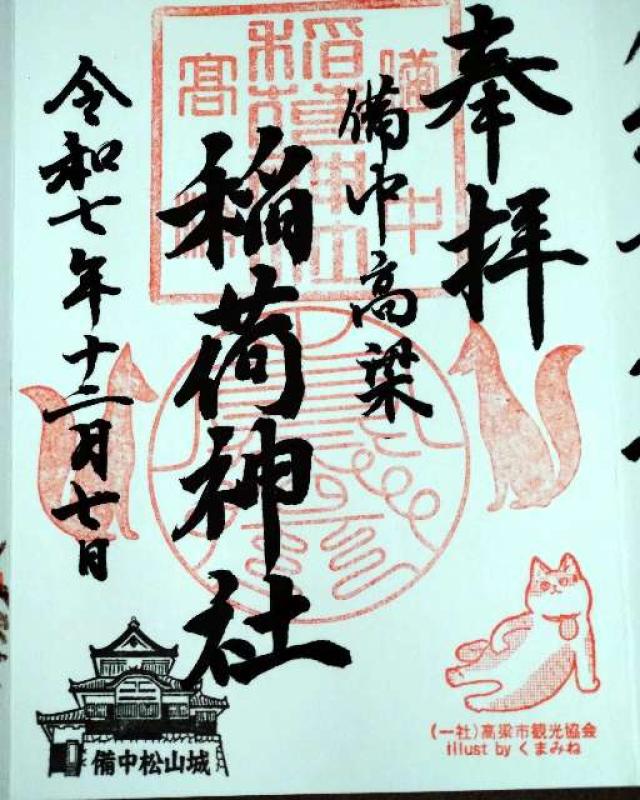 奉拝
備中高梁
稲荷神社
令和七年十二月七日
備中
稲荷神社
高梁
備中松山城
(一社)高梁市観光協会
illust by くまみね